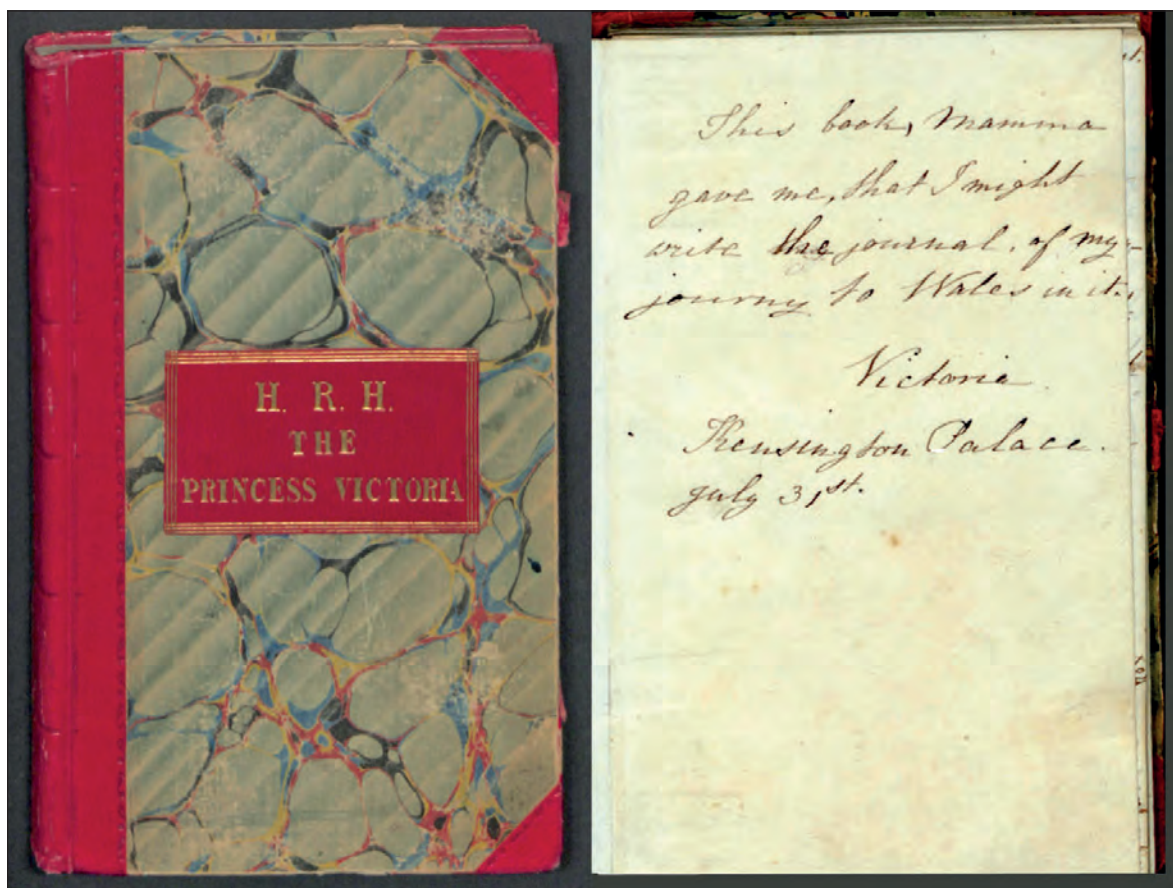 H. R. H.
THE
PRINCESS VICTORIA
This book, Mamma
gave me, that I might
write the journal of my
journey to Wales in it.
Victoria.
Kensington Palace.
July 31st.